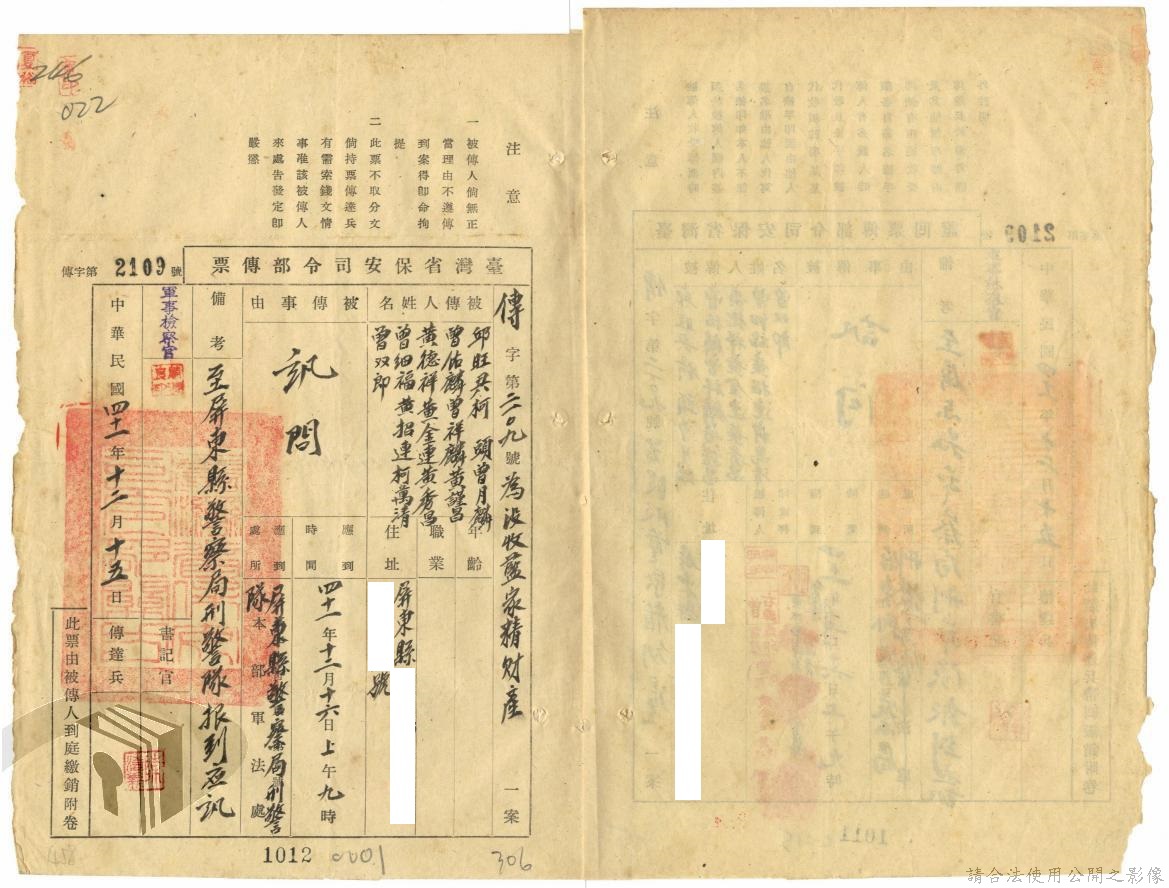 246
022
注意
一 被傳人倘無正
當理由不遵傳
到案得即命拘
提
二 此票不取分文
倘持票傳達兵
有需索錢文情
事准該被傳人
來處告發定即
嚴懲
臺灣省保安司令部傳票
傳字第 2109 號
傳字第二一〇九號為沒收藍家精財產一案
被傳人姓名
邱旺 吳柯頭 曾月麟
曾佑麟 曾祥麟 黃謹昌
黃德祥 黃金連 黃秀昌
曾細福 黃招連 柯萬清
曾双郎
年齡
職業
住址
屏東縣
號
被傳事由
訊問
應到時間
四十一年十二月十六日上午九時
應到處所
屏東縣警察局刑警隊
本部軍法處
備考
至屏東縣警察局刑警隊報到应訊
軍事檢察官
書記官
中華民國四十一年十二月十五日
傳達兵
此票由被傳人到庭繳銷附卷
1012
0001
306
請合法使用公開之影像